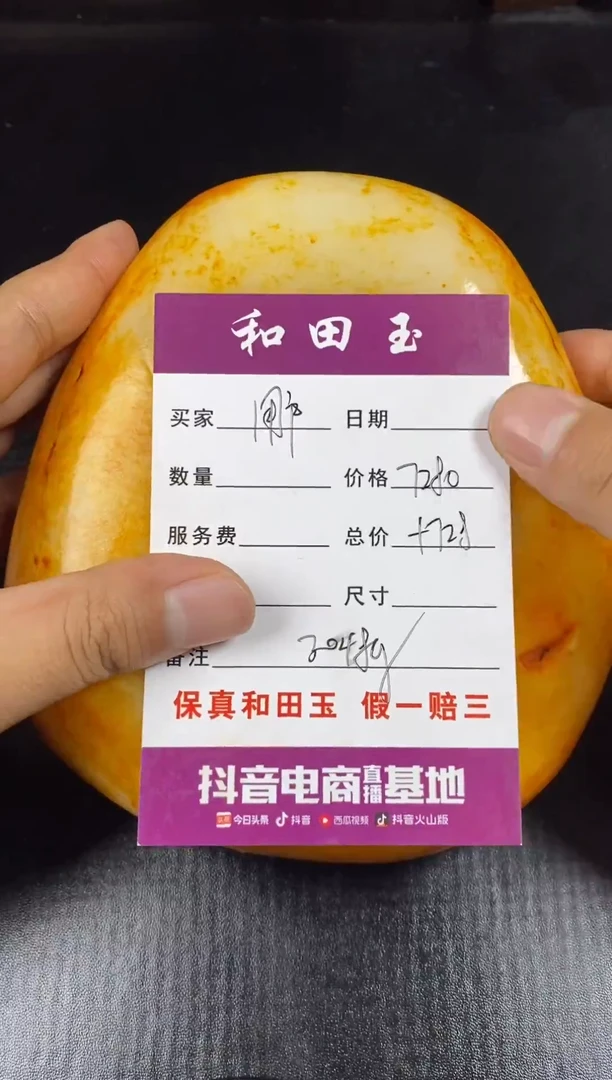 和田玉
买家 周 日期
数量 价格 7280
服务费 总价 +728
尺寸
备注
保真和田玉 假一赔三
抖音电商直播基地
今日头条 抖音 西瓜视频 抖音火山版